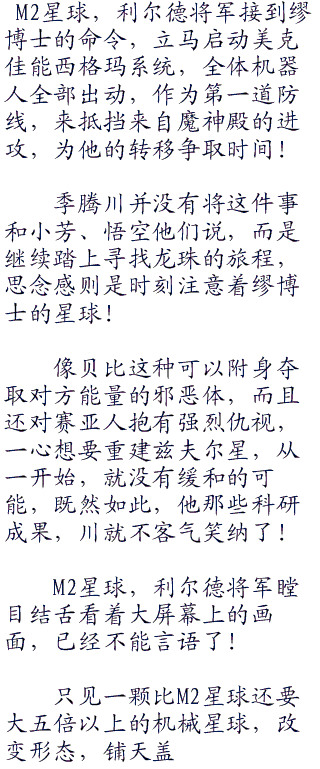 M2星球，利尔德将军接到缪
博士的命令，立马启动美克
佳能西格玛系统，全体机器
人全部出动，作为第一道防
线，来抵挡来自魔神殿的进
攻，为他的转移争取时间！
季腾川并没有将这件事
和小芳、悟空他们说，而是
继续踏上寻找龙珠的旅程，
思念感则是时刻注意着缪博
士的星球！
像贝比这种可以附身夺
取对方能量的邪恶体，而且
还对赛亚人抱有强烈仇视，
一心想要重建兹夫尔星，从
一开始，就没有缓和的可
能，既然如此，他那些科研
成果，川就不客气笑纳了！
M2星球，利尔德将军瞠
目结舌看着大屏幕上的画
面，已经不能言语了！
只见一颗比M2星球还要
大五倍以上的机械星球，改
变形态，铺天盖